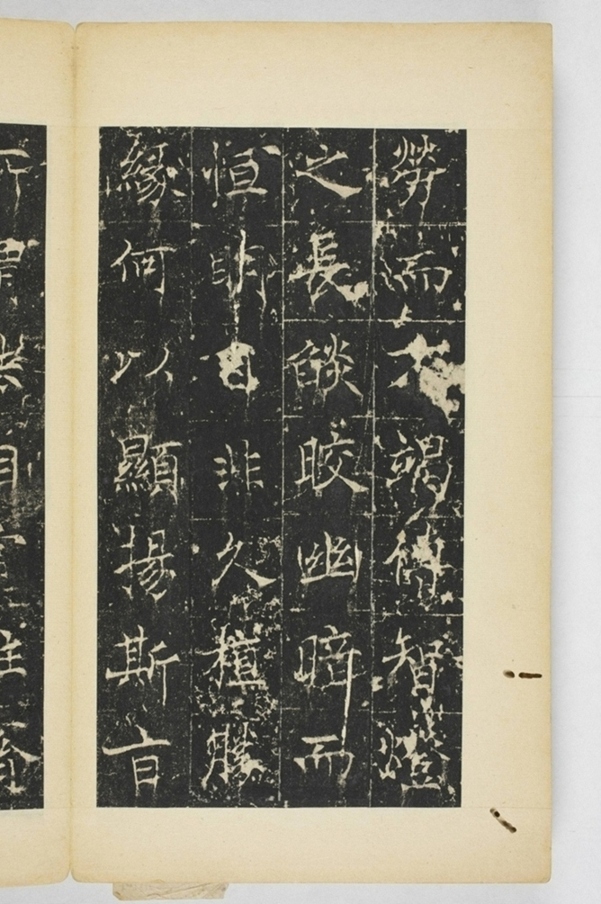 勞而不竭傳智燈
之長燄皎幽暗而
恒明自非久植勝
緣何以顯揚斯旨